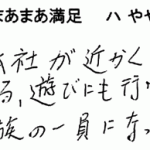 まあまあ満足 ハ やや
社が近かく
る,遊びにも行
族の一員になっ